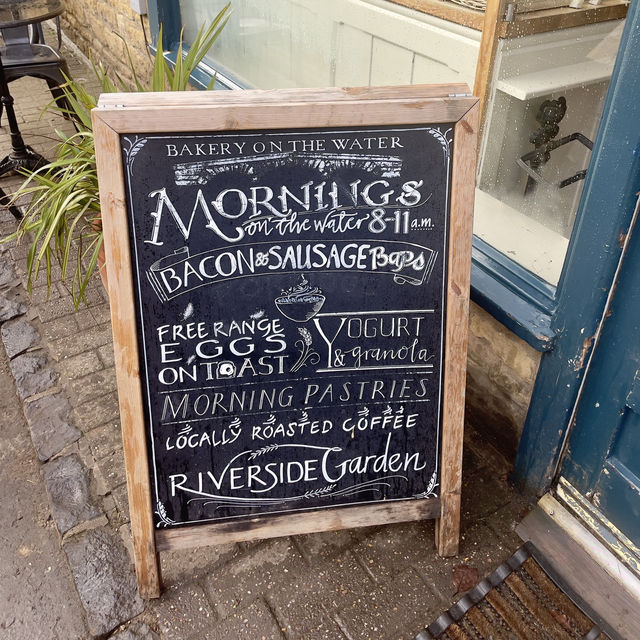 BAKERY ON THE WATER
MORNINGS
on the water 8-11 a.m.
BACON & SAUSAGE BAPS
FREE RANGE
EGGS
ON TOAST
YOGURT
& granola
MORNING PASTRIES
LOCALLY ROASTED COFFEE
RIVERSIDE Garden